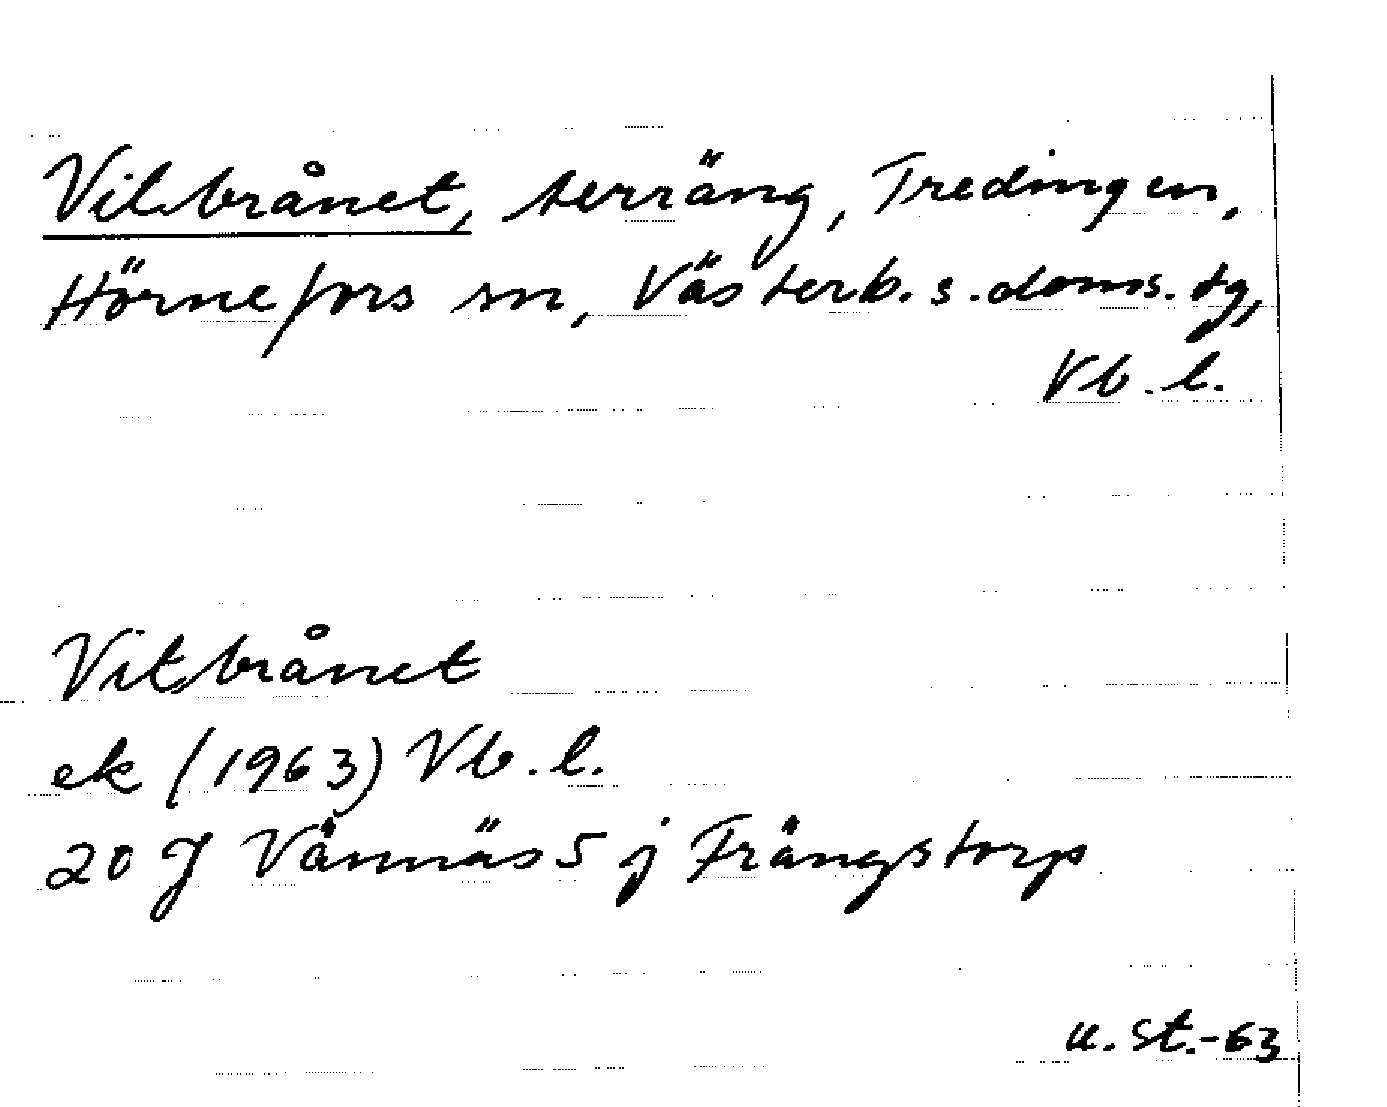 Vitbrånet, terräng, Tredingen,
Hörnefors sn, Västerb. s. doms. tg,
Vb. l.
Vitbrånet
ek (1963) Vb. l.
20 J Vännäs 5 j Frängstorp
u. St.-63